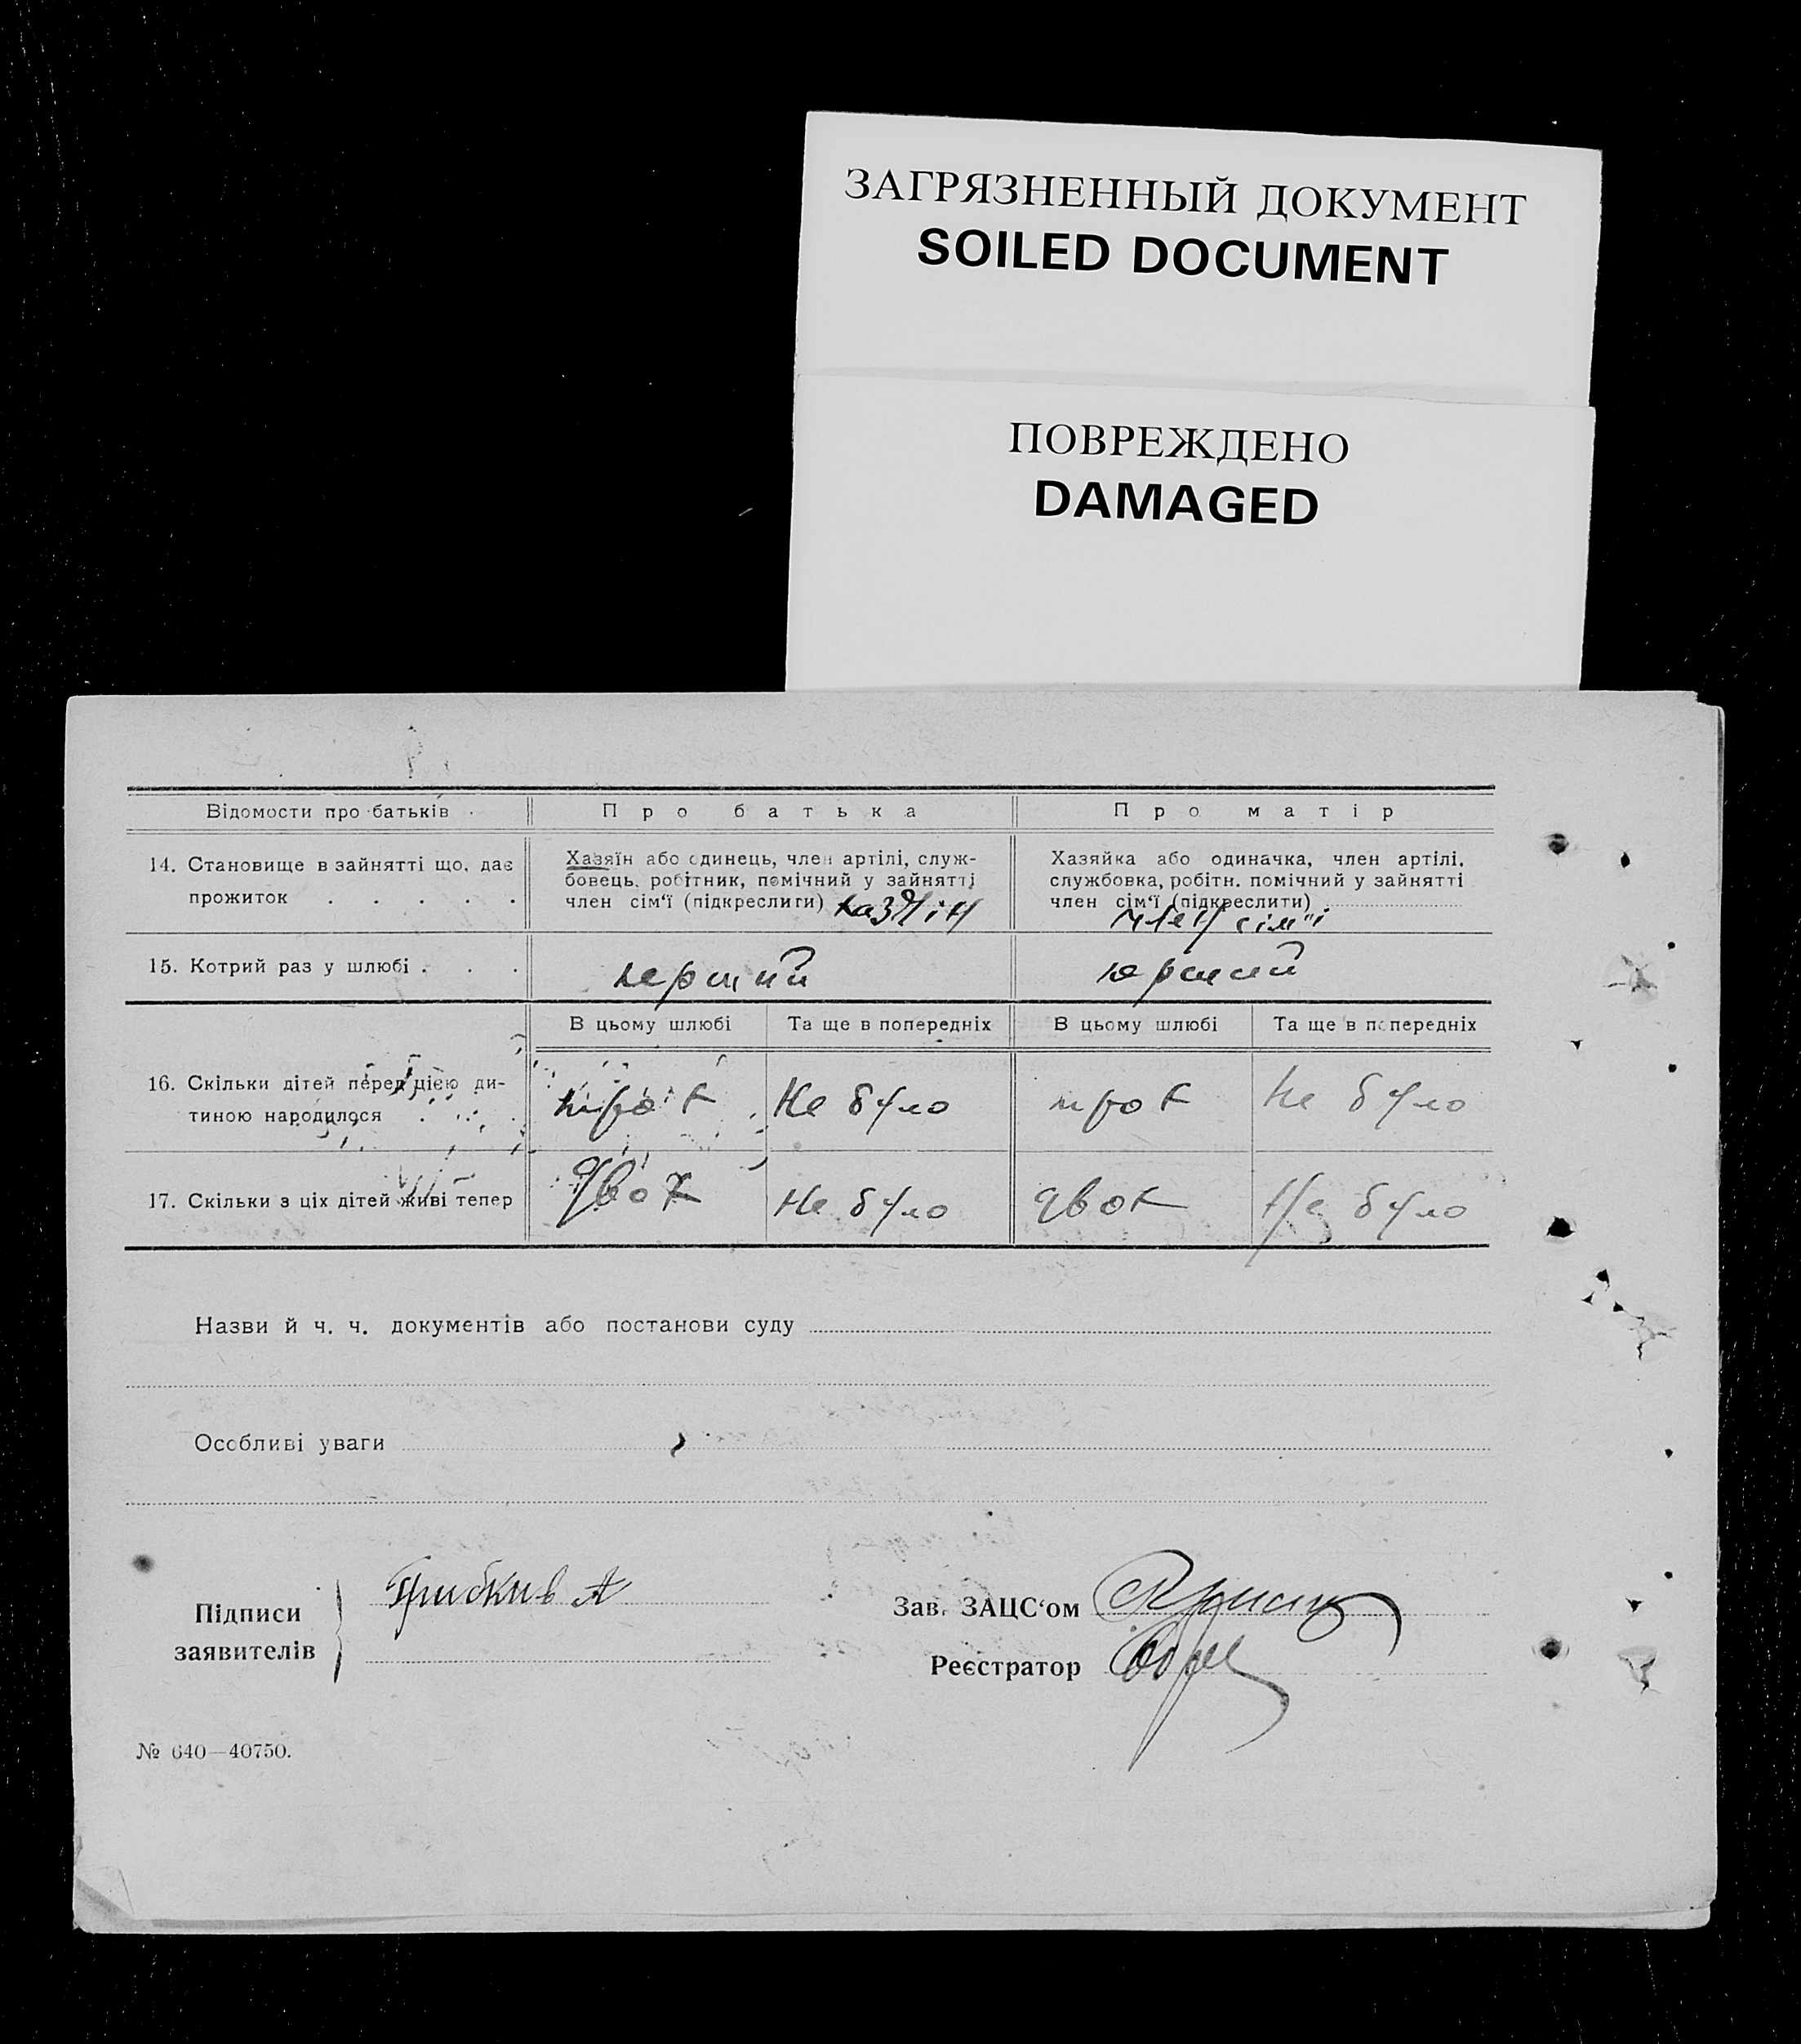 ЗАГРЯЗНЕННЫЙ ДОКУМЕНТ
SOILED DOCUMENT
ПОВРЕЖДЕНО
DAMAGED
Відомости про батьків Про батька Про матір
14. Становище в зайнятті що, дає прожиток . . . . .
Хазяїн або одинець, член артілі, служ-
бовець, робітник, помічний у зайнятті
член сім‘ї (підкреслити) хазяін
Хазяйка або одиначка, член артілі,
службовка, робітн. помічний у зайнятті
член сім‘ї (підкреслити)
член сім"і
15. Котрий раз у шлюбі . . . перший перший
В цьому шлюбі Та ще в попередніх В цьому шлюбі Та ще в попередніх
16. Скільки дітей перед цією ди-
тиною народилося
трох Не було трох Не було
17. Скільки з ціх дітей живі тепер двох Не було двох Не було
Назви й ч. ч. документів або постанови суду
Особливі уваги
Підписи
заявителів
Грибкив А
Зав. ЗАЦС‘ом
Реєстратор
№ 640—40750.